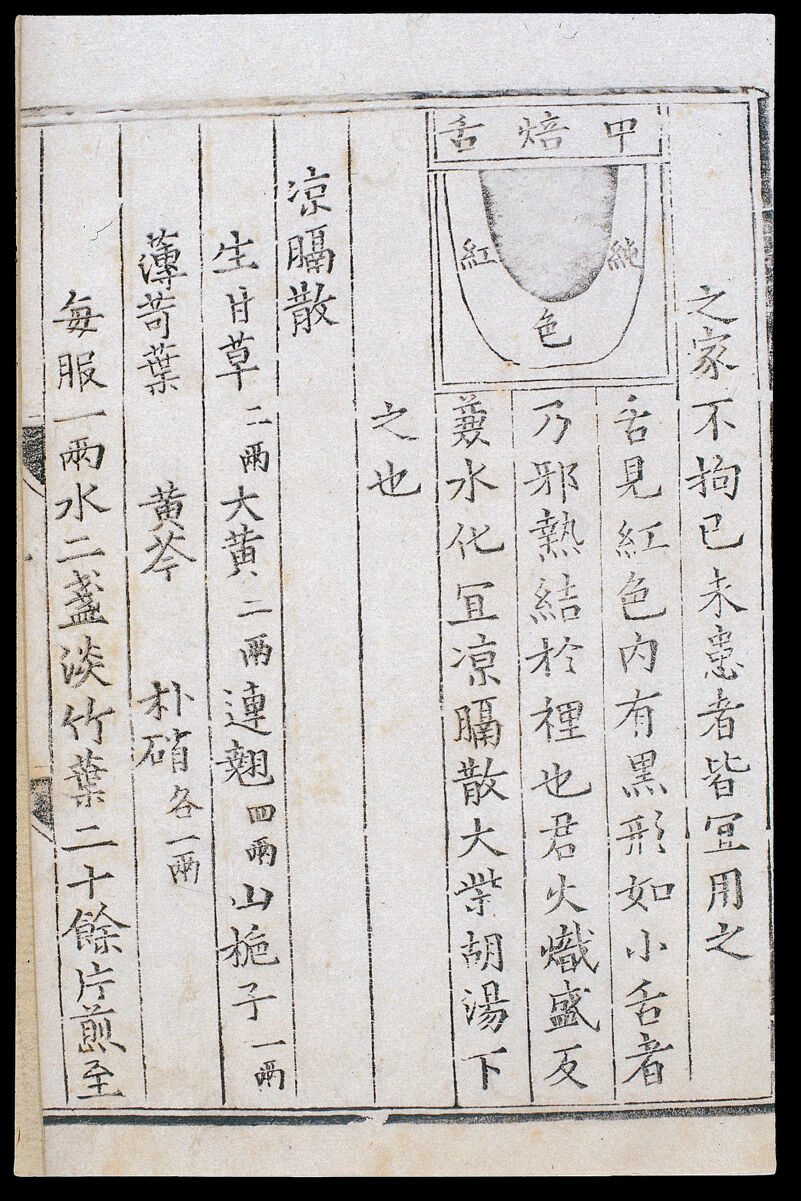 之家不拘已未患者皆冝用之
甲焙舌
純紅色
舌見紅色内有黒形如小舌者
乃邪熱結於裡也君火熾盛反
兼水化冝凉膈散大柴胡湯下
之也
凉膈散
生甘草二兩大黄二兩連翹四兩山梔子一兩
薄苛葉 黄芩 朴硝各一兩
每服一兩水二盞淡竹葉二十餘片煎至